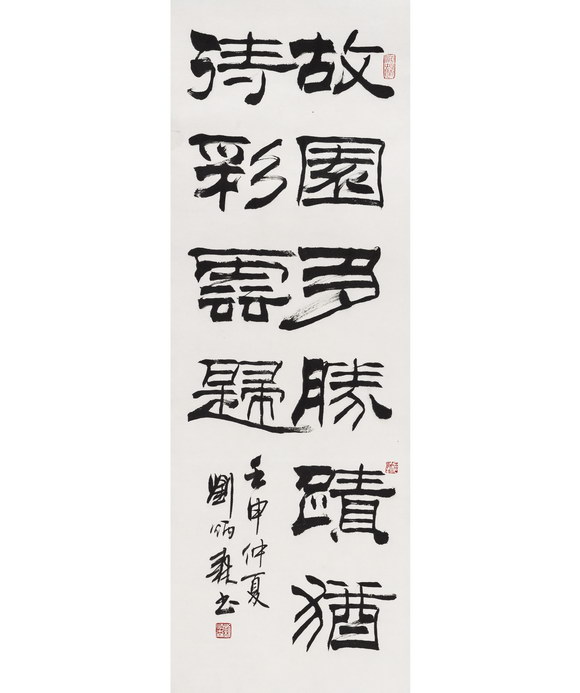 故園多勝蹟猶
待彩雲歸
壬申仲夏
劉炳森書